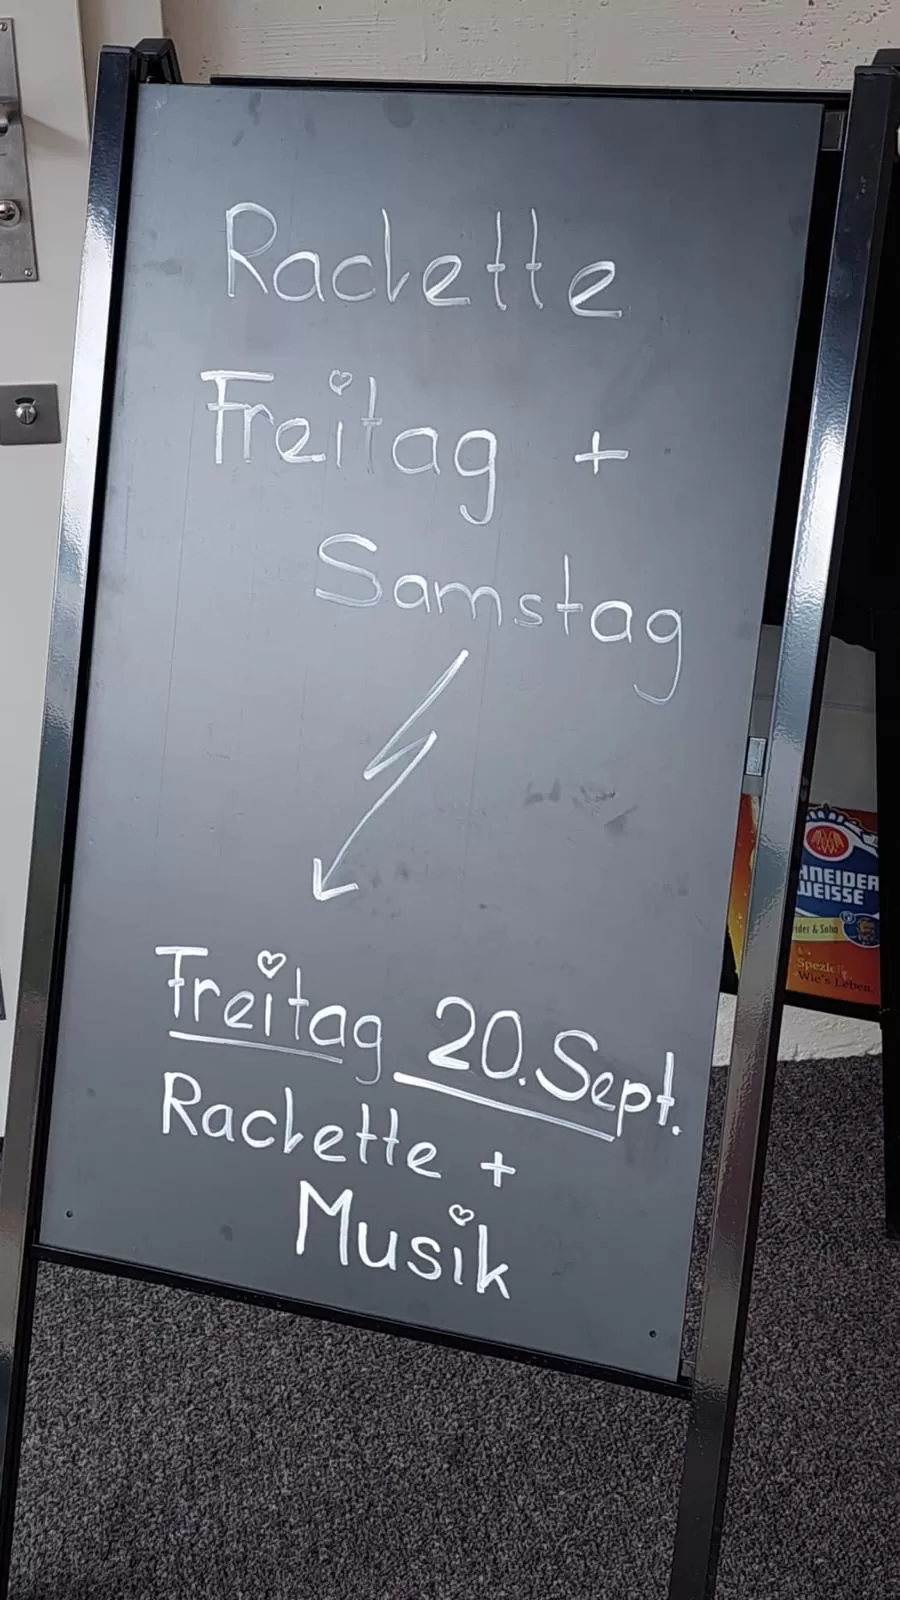 Raclette
Freitag +
Samstag
Freitag 20. Sept.
Raclette +
Musik
HNEIDER
WEISSE
ider & Sohn
Speziell
Wie's Leben.